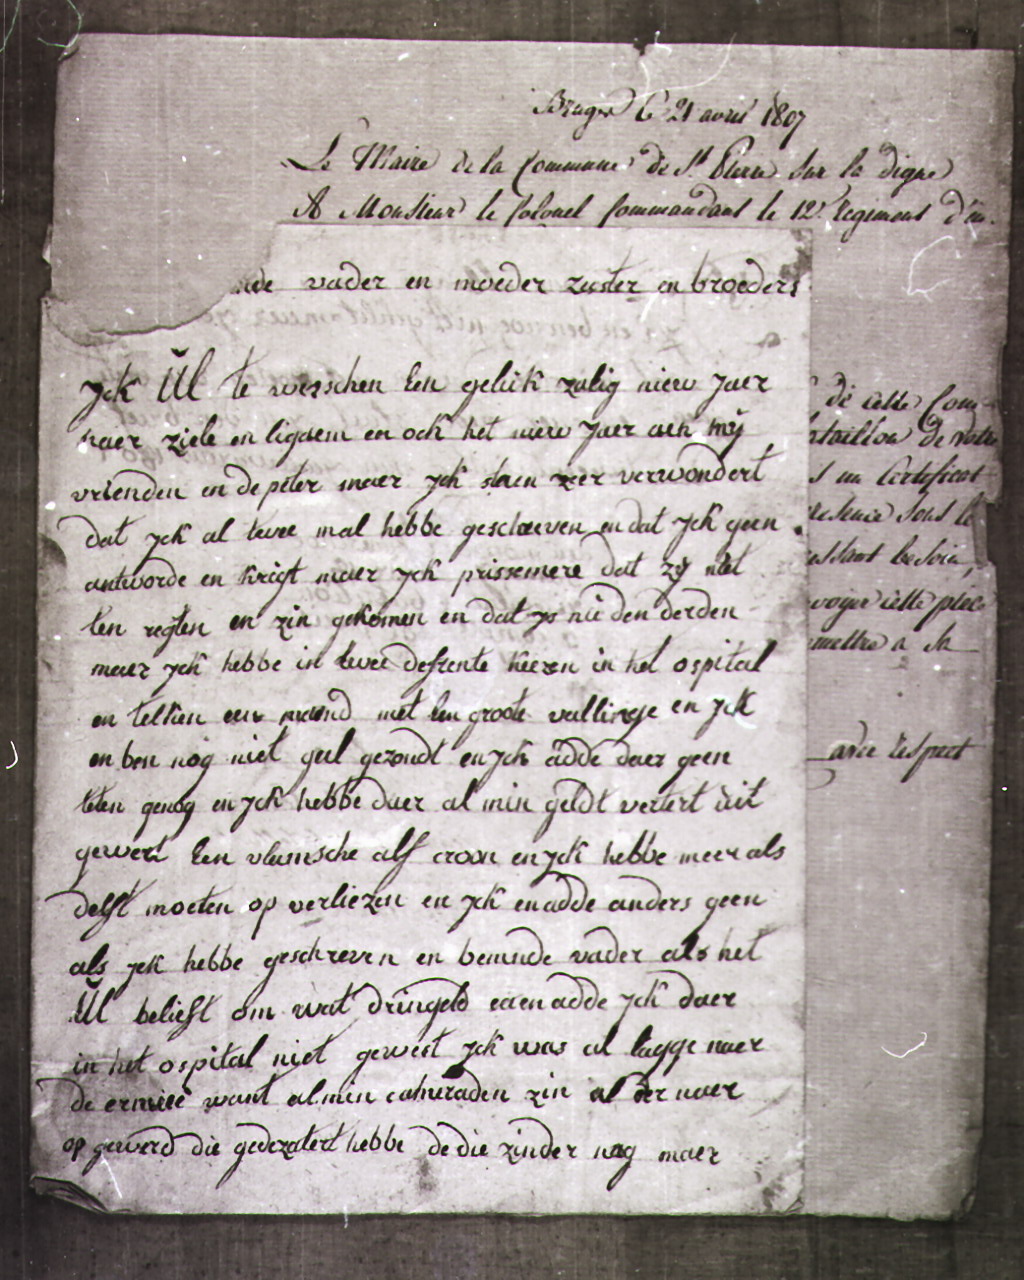 Bruges le 21 avril 1807
Le Maire de la Commune de St. Pierre sur la digue
A Monsieur le Colonel Commandant le 12e Regiment d'in.
nde vader en moeder zuster en broeders
yck Ul te wensschen Een geluk zalig niew Jaer
naer ziele en ligaem en ock het niew Jaer aen mij
vrienden en de peter maer yck sten zeer verwondert
dat yck al twee mal hebbe geschreven en dat yck geen
antworde en krigt maer yck prissemere dat zy niet
ten regten en zin gekomen en dat ys nie den derden
maer yck hebbe in twee defrente keeren in het ospital
en telkien een maend met Een groote vallinge en yck
en ben nog niet geel gezondt en yck adde daer geen
teten genog en yck hebbe daer al min geldt vertert uit
gewert Een vlamsche alf croon en yck hebbe meer als
delft moeten op verliezen en yck en adde anders geen
als yck hebbe geschreven en beminde vader als het
Ul belieft om wat dringeld en adde yck daer
in het ospital niet gewest yck was al lagge naer
de ermeie want al min cameraden zin al der naer
op gewerd die gedezatert hebbe de die zinder nog maer
de cette Com-
bataillon de votre
un Certificat
presence sous le
besoin,
cette place
mettre a la
avec respect